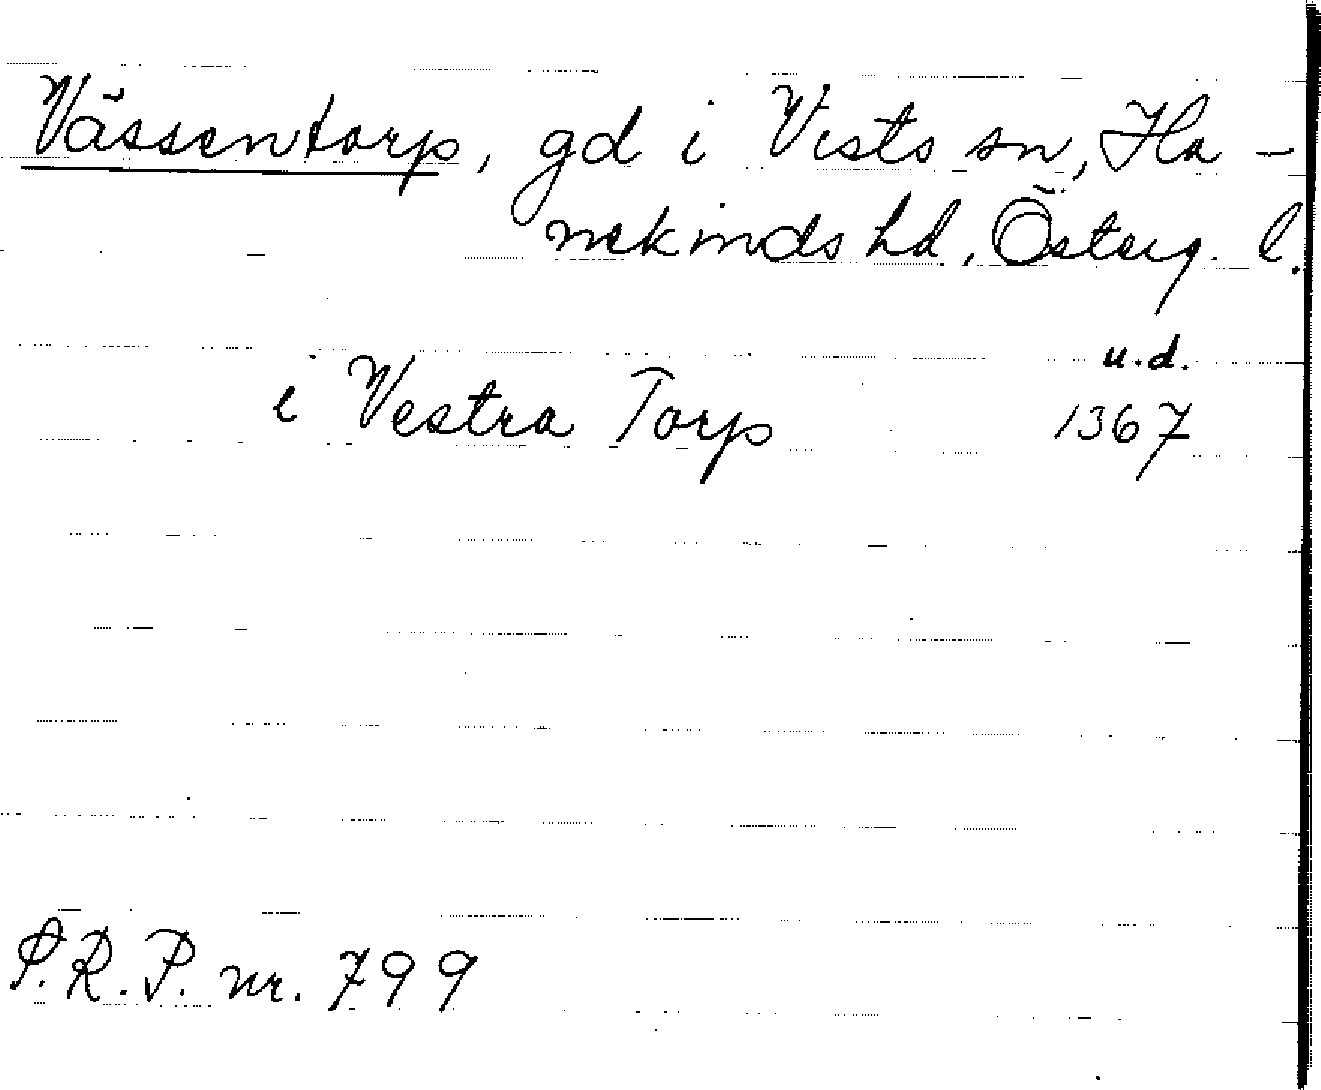 Vässentorp, gd i Vists sn, Ha-
nekinds hd, Österg. l.
u.d.
i Vestra Torp 1367
S.R.P. nr. 799